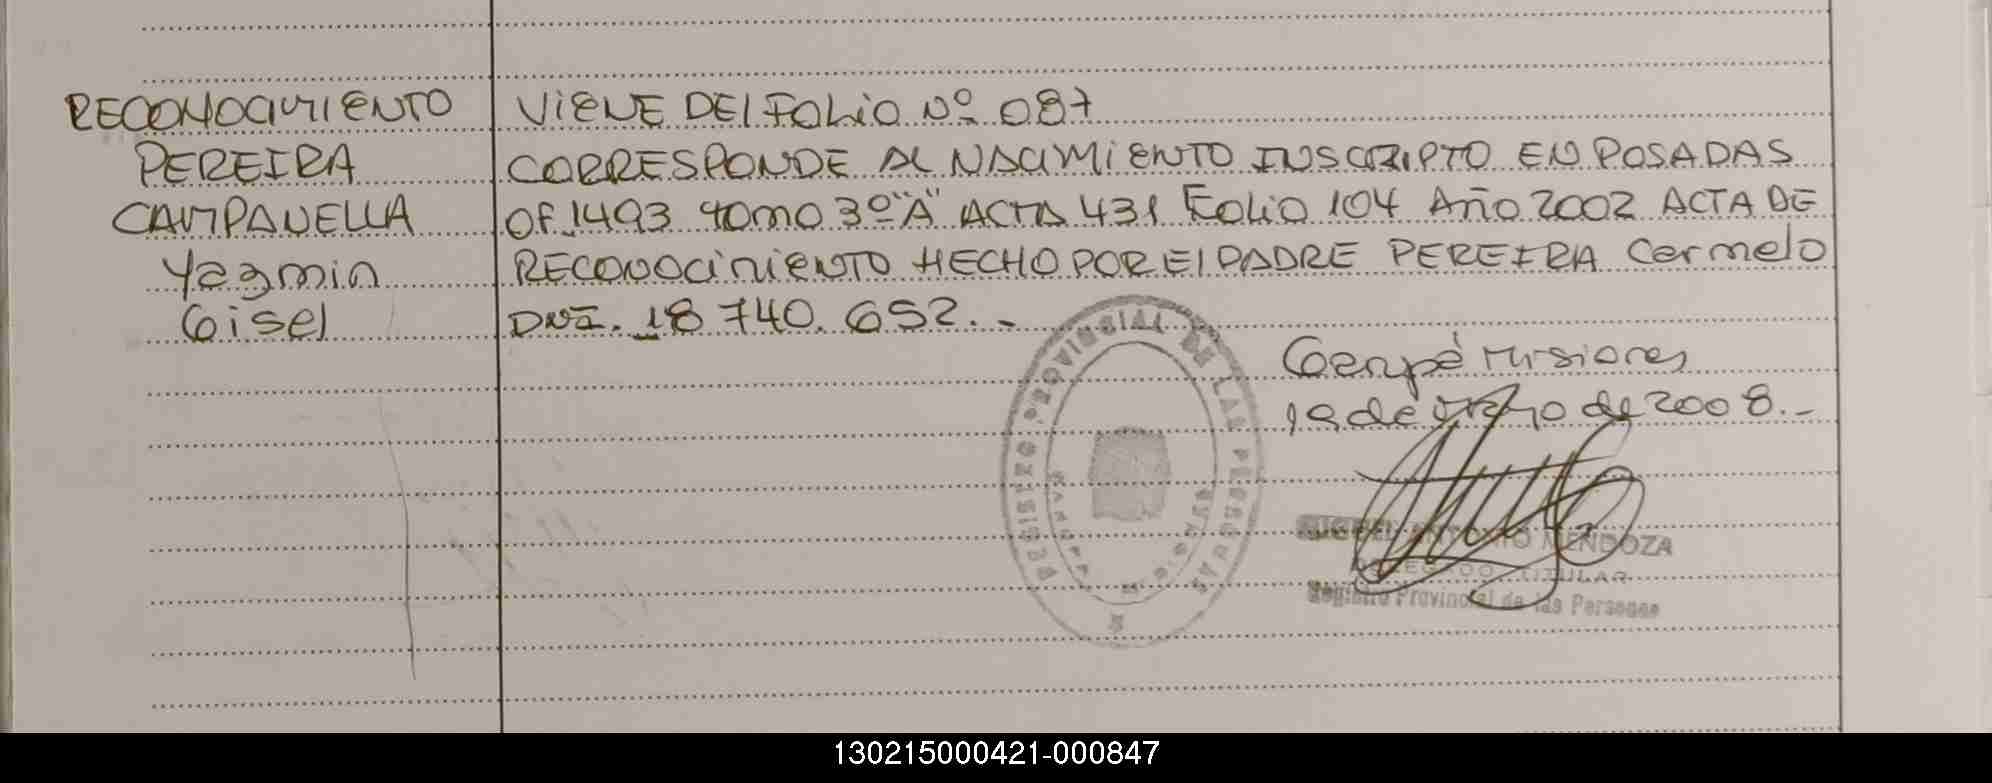 RECONOCIMIENTO
PEREIRA
CAMPANELLA
Yazmin
Gisel
VIENE DEL FOLIO Nº 087
CORRESPONDE AL NACIMIENTO INSCRIPTO EN POSADAS
OF. 1493 tomo 3º "A" ACTA 431 Folio 104 Año 2002 ACTA DE
RECONOCIMIENTO HECHO POR El PADRE PEREIRA Carmelo
DNI. 18 740. 652.-
Garupá Misiones
19 de Mayo de 2008.-
REGISTRO PROVINCIAL DE LAS PERSONAS
MIGUEL ANTONIO MENDOZA
DELEGADO TITULAR
Registro Provincial de las Personas
130215000421-000847